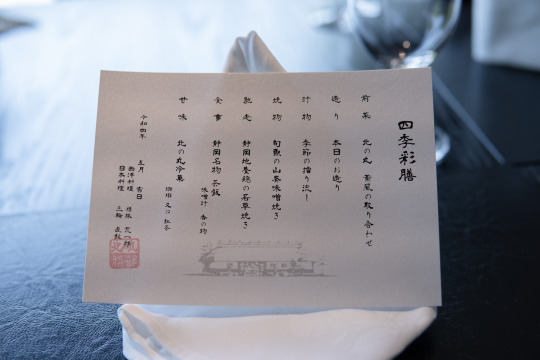 四季彩膳
前菜 北の丸 薫風の取り合わせ
造り 本日のお造り
汁物 季節の摺り流し
焼物 旬魚の山葵味噌焼き
馳走 静岡地養鶏の若草焼き
食事 静岡名物 茶飯
味噌汁 香の物
甘味 北の丸冷菓
珈琲 又は 紅茶
令和四年 五月 吉日
西洋料理
日本料理 三輪